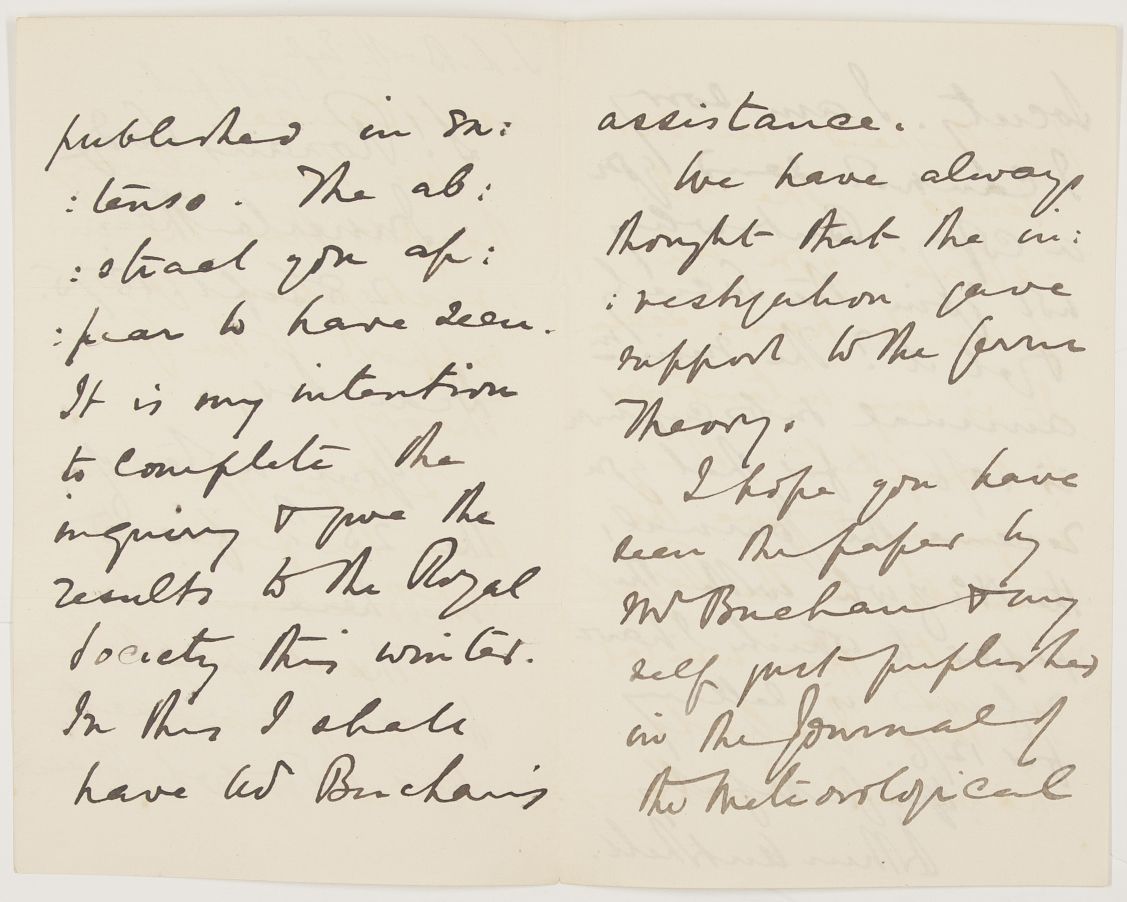 published in Ex:
:tenso. The ab:
:stract you ap:
:pear to have seen.
It is my intention
to complete the
inquiry & give the
results to the Royal
Society this winter.
In this I shall
have Buchan's
assistance.
We have always
thought that the in:
:vestigation gave
support to the Germ
Theory.
I hope you have
seen the paper by
Mr Buchan & my
self just published
in the Journal of
the Meteorological